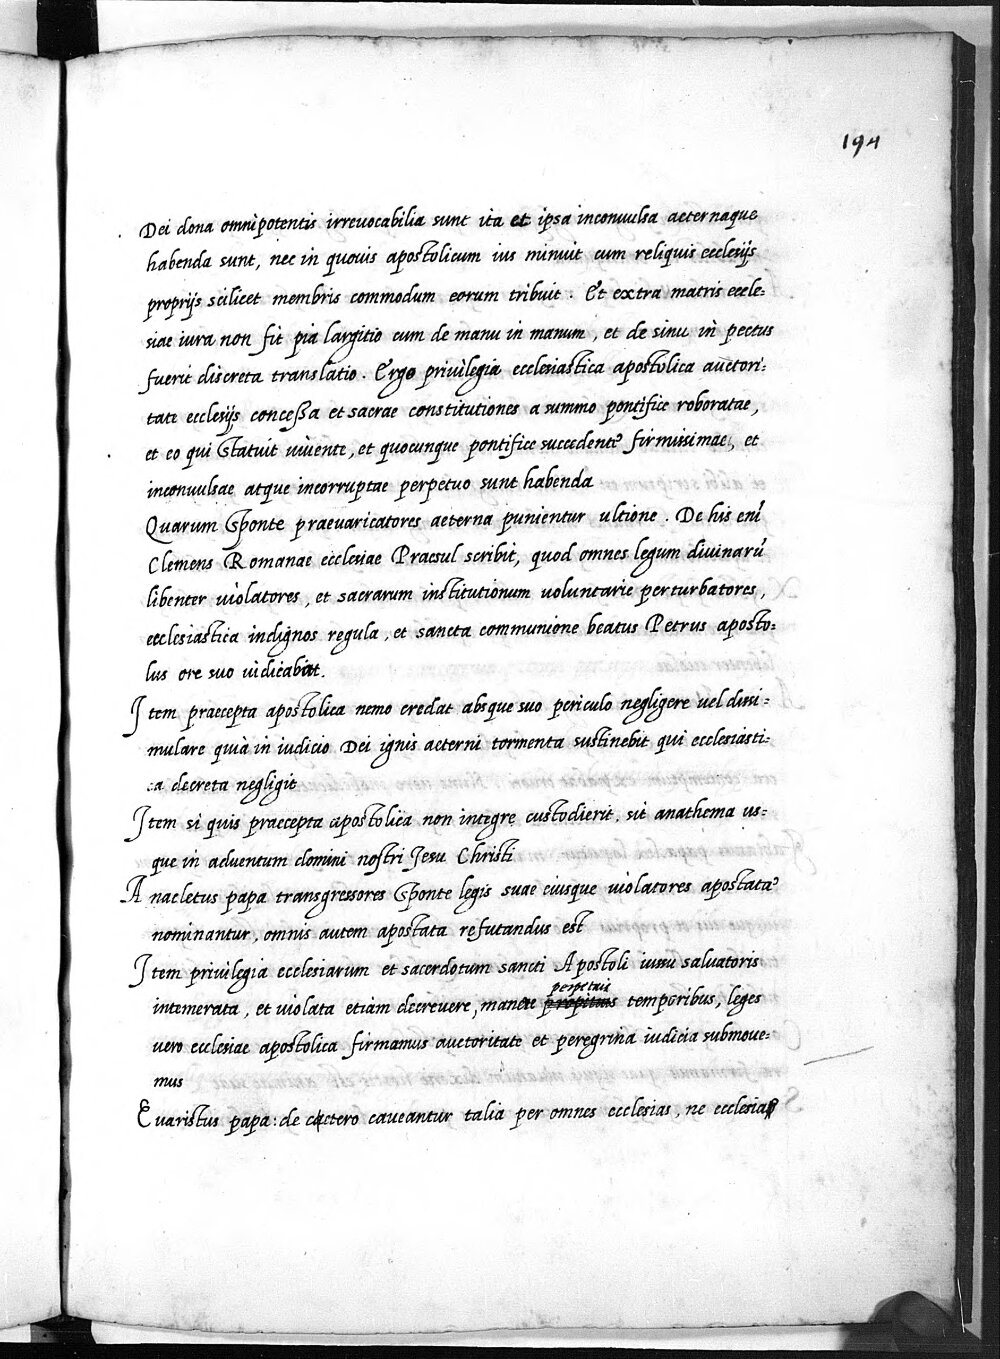 194
Dei dona omnipotentis irreuocabilia sunt ita et ipsa inconuulsa aeternaque
habenda sunt, nec in quouis apostolicum ius minuit cum reliquis ecclesijs
proprijs scilicet membris commodum eorum tribuit. Et extra matris eccle:
siae iura non fit pia largitio cum de manu in manum, et de sinu in pectus
fuerit discreta translatio. Ergo priuilegia ecclesiastica apostolica auctori:
tate ecclesijs concessa et sacrae constitutiones a summo pontifice roboratae,
et eo qui statuit uiuente, et quocunque pontifice succedente firmissimae, et
inconuulsae atque incorruptae perpetuo sunt habenda
Quarum sponte praeuaricatores aeterna punientur ultione. De his eni
Clemens Romanae ecclesiae Praesul scribit, quod omnes legum diuinarū
libenter uiolatores, et sacrarum institutionum uoluntarie perturbatores,
ecclesiastica indignos regula, et sancta communione beatus Petrus aposto:
lus ore suo iudicabat.
Item praecepta apostolica nemo credat absque suo periculo negligere uel dissi:
mulare quia in iudicio Dei ignis aeterni tormenta sustinebit qui ecclesiasti:
ca decreta negligit
Item si quis praecepta apostolica non integre custodierit, sit anathema us:
que in aduentum domini nostri Jesu Christi
Anacletus papa transgressores sponte legis suae eiusque uiolatores apostatae
nominantur, omnis autem apostata refutandus est
Item priuilegia ecclesiarum et sacerdotum sancti Apostoli iussu saluatoris
perpetuis
intemerata, et uiolata etiam decreuere, manere temporibus, leges
uero ecclesiae apostolica firmamus auctoritate et peregrina iudicia submoue:
mus
Euaristus papa: de caetero caueantur talia per omnes ecclesias, ne ecclesia